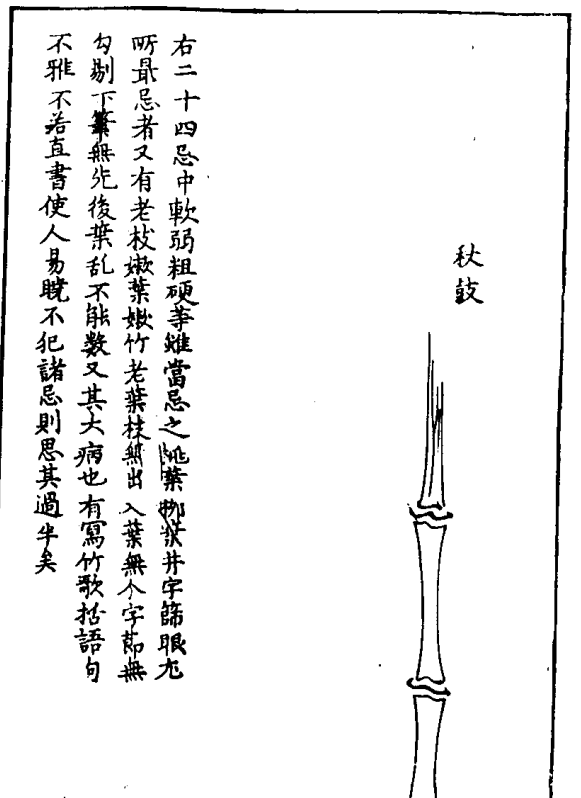 秋鼓
右二十四忌中軟弱粗硬等雖當忌之桃葉柳葉井字篩眼尤
所最忌者又有老枝嫩葉嫩竹老葉枝無出入葉無个字節無
勾剔下筆無先後葉乱不能数又其大病也有寫竹歌括語句
不雅不若直書使人易曉不犯諸忌則思其過半矣